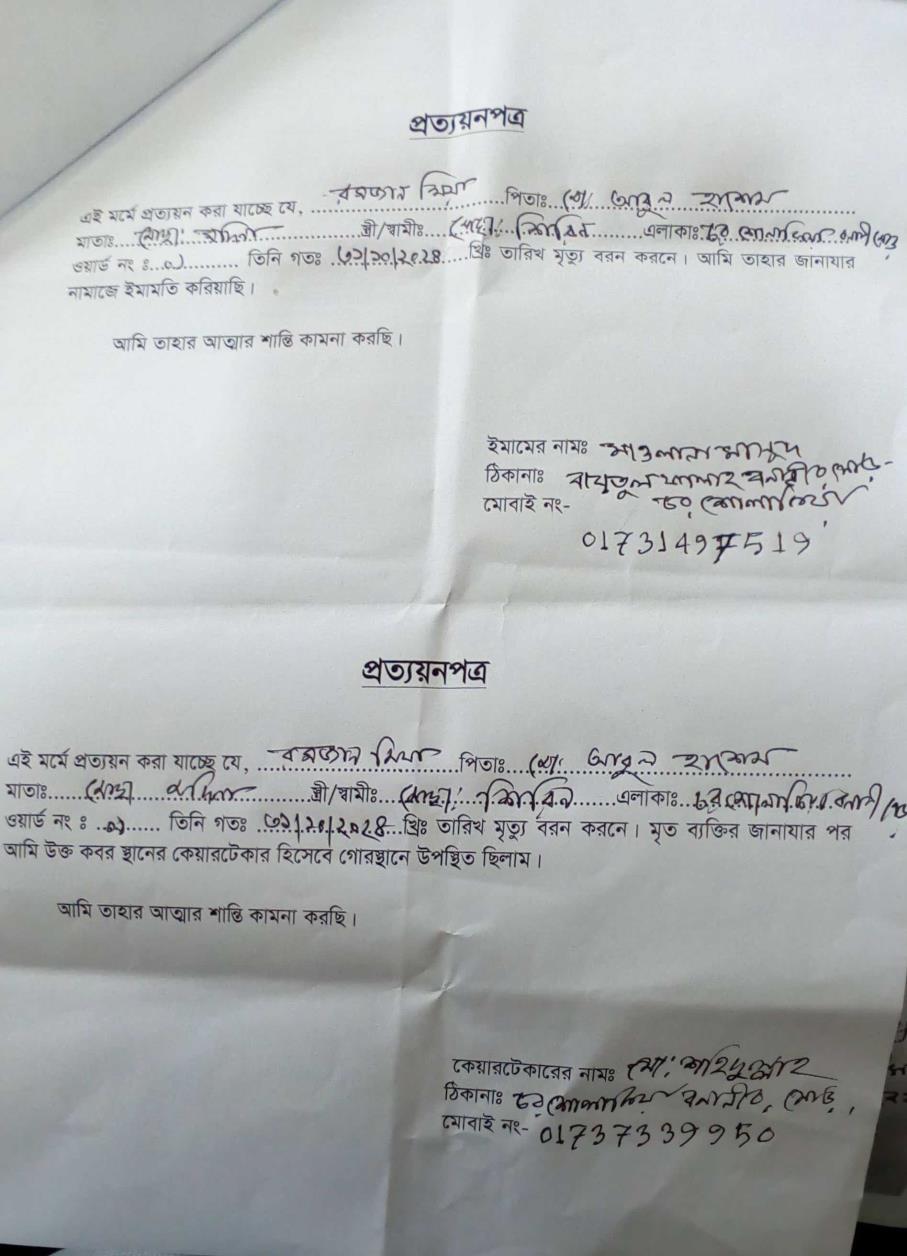 প্রত্যয়নপত্র
এই মর্মে প্রত্যয়ন করা যাচ্ছে যে, রমজান মিয়া পিতাঃ মো: আবুল হাশেম
মাতাঃ মোছা: স্ত্রী/স্বামীঃ মোছা: শিরিন এলাকাঃ চর শোলাকিয়া
ওয়ার্ড নং ঃ ০১ তিনি গতঃ খ্রিঃ তারিখ মৃত্যু বরন করনে। আমি তাহার জানাযার
নামাজে ইমামতি করিয়াছি।
আমি তাহার আত্মার শান্তি কামনা করছি।
ইমামের নামঃ মাওলানা
ঠিকানাঃ বায়তুল
মোবাই নং- চর শোলাকিয়া
01731497519
প্রত্যয়নপত্র
এই মর্মে প্রত্যয়ন করা যাচ্ছে যে, রমজান মিয়া পিতাঃ মো: আবুল হাশেম
মাতাঃ মোছা স্ত্রী/স্বামীঃ মোছা: শিরিন এলাকাঃ চর শোলাকিয়া
ওয়ার্ড নং ঃ ০১ তিনি গতঃ খ্রিঃ তারিখ মৃত্যু বরন করনে। মৃত ব্যক্তির জানাযার পর
আমি উক্ত কবর স্থানের কেয়ারটেকার হিসেবে গোরস্থানে উপস্থিত ছিলাম।
আমি তাহার আত্মার শান্তি কামনা করছি।
কেয়ারটেকারের নামঃ মো: শহিদুল্লাহ
ঠিকানাঃ চর শোলাকিয়া
মোবাই নং- 01737339950